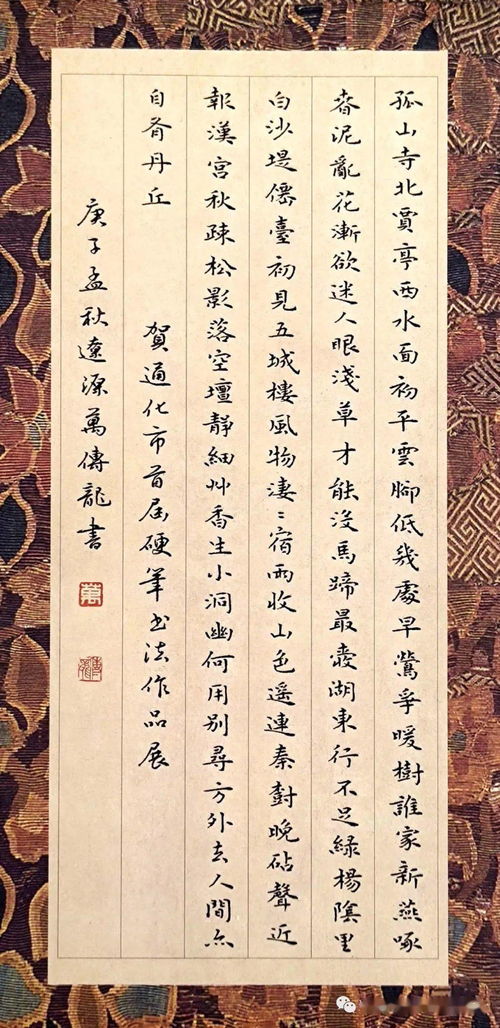 孤山寺北賈亭西水面初平雲腳低幾處早鶯爭暖樹誰家新燕啄
春泥亂花漸欲迷人眼淺草才能沒馬蹄最愛湖東行不足綠楊隂里
白沙堤僊臺初見五城樓風物淒〻宿雨收山色遥連秦樹晚砧聲近
報漢宮秋疎松影落空壇靜細艸香生小洞幽何用別尋方外去人間亦
自有丹丘 賀通化市首届硬筆書法作品展
庚子孟秋遼源萬傳龍書
萬